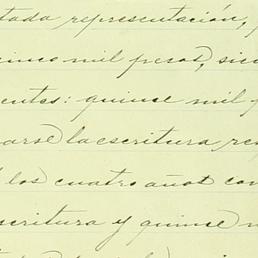 tada representación,
cinco mil pesos, sie
entos: quince mil p
arse la escritura re
los cuatro años con
scritura y quince m